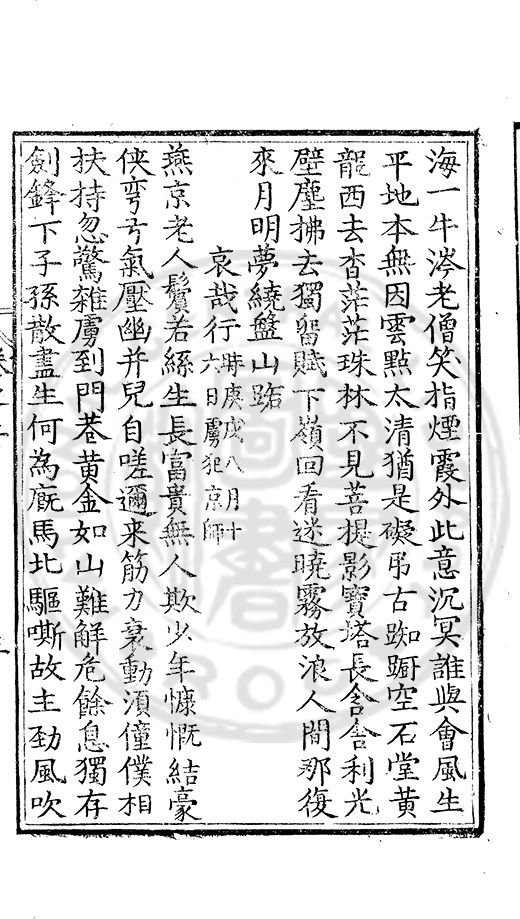 海一牛涔老僧笑指煙霞外此意沉冥誰與會風生
平地本無因雲點太清猶是礙弔古踟躕空石堂黃
龍西去杳茫茫珠林不見菩提影寶塔長含舍利光
壁塵拂去獨留賦下嶺回看迷曉霧放浪人間那復
來月明夢繞盤山路
哀哉行時庚戌八月十六日虜犯京師
燕京老人鬢若絲生長富貴無人欺少年慷慨結豪
俠彎弓氣壓幽并兒自嗟邇来筋力衰動湏僮僕相
扶持忽驚雜虜到門巷黃金如山難解危餘息獨存
劍鋒下子孫散盡生何為廐馬北驅嘶故主勁風吹